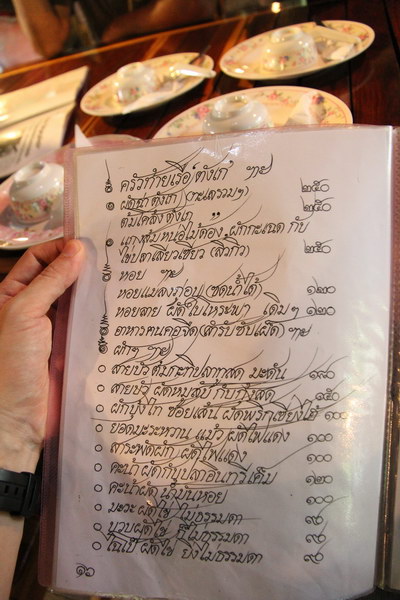 ครัวท้ายเรือ ตังเก ๆ
ผัดฉ่า ตังเก (ทะเลรวมๆ) ๒๕๐
ต้มโคล้ง ตังเก ๒๕๐
แกงส้ม หน่อไม้ดอง ผักกระเฉด กับ
๒๕๐
หอย
หอยแมลงภู่อบ (ซดน้ำได้) ๑๒๐
หอยลาย ผัดใบโหระพา เดิมๆ ๑๒๐
อาหารคนคอจืด (สำรับซับเผ็ด)
ผักๆ
สายบัว ต้มกะทิปลาทูสด มะดัน ๑๘๐
สายบัว ผัดหมูสับ กับกุ้งสด ๑๕๐
ผักบุ้งไทย ซอยเส้น ผัดพริกเซี่ยงไฮ้ ๑๐๐
ยอดมะระหวาน แม้ว ผัดไฟแดง ๑๐๐
สาระพัดผัก ผัดไฟแดง ๑๐๐
คะน้า ผัดกับปลาอินทรีเค็ม ๑๒๐
คะน้าผัด น้ำมันหอย ๑๐๐
มะระ ผัดไข่ ไม่ธรรมดา ๙๐
บวบผัดไข่ ก็ไม่ธรรมดา ๙๐
ไชโป๊ ผัดไข่ ยิ่งไม่ธรรมดา ๙๐
๑๖